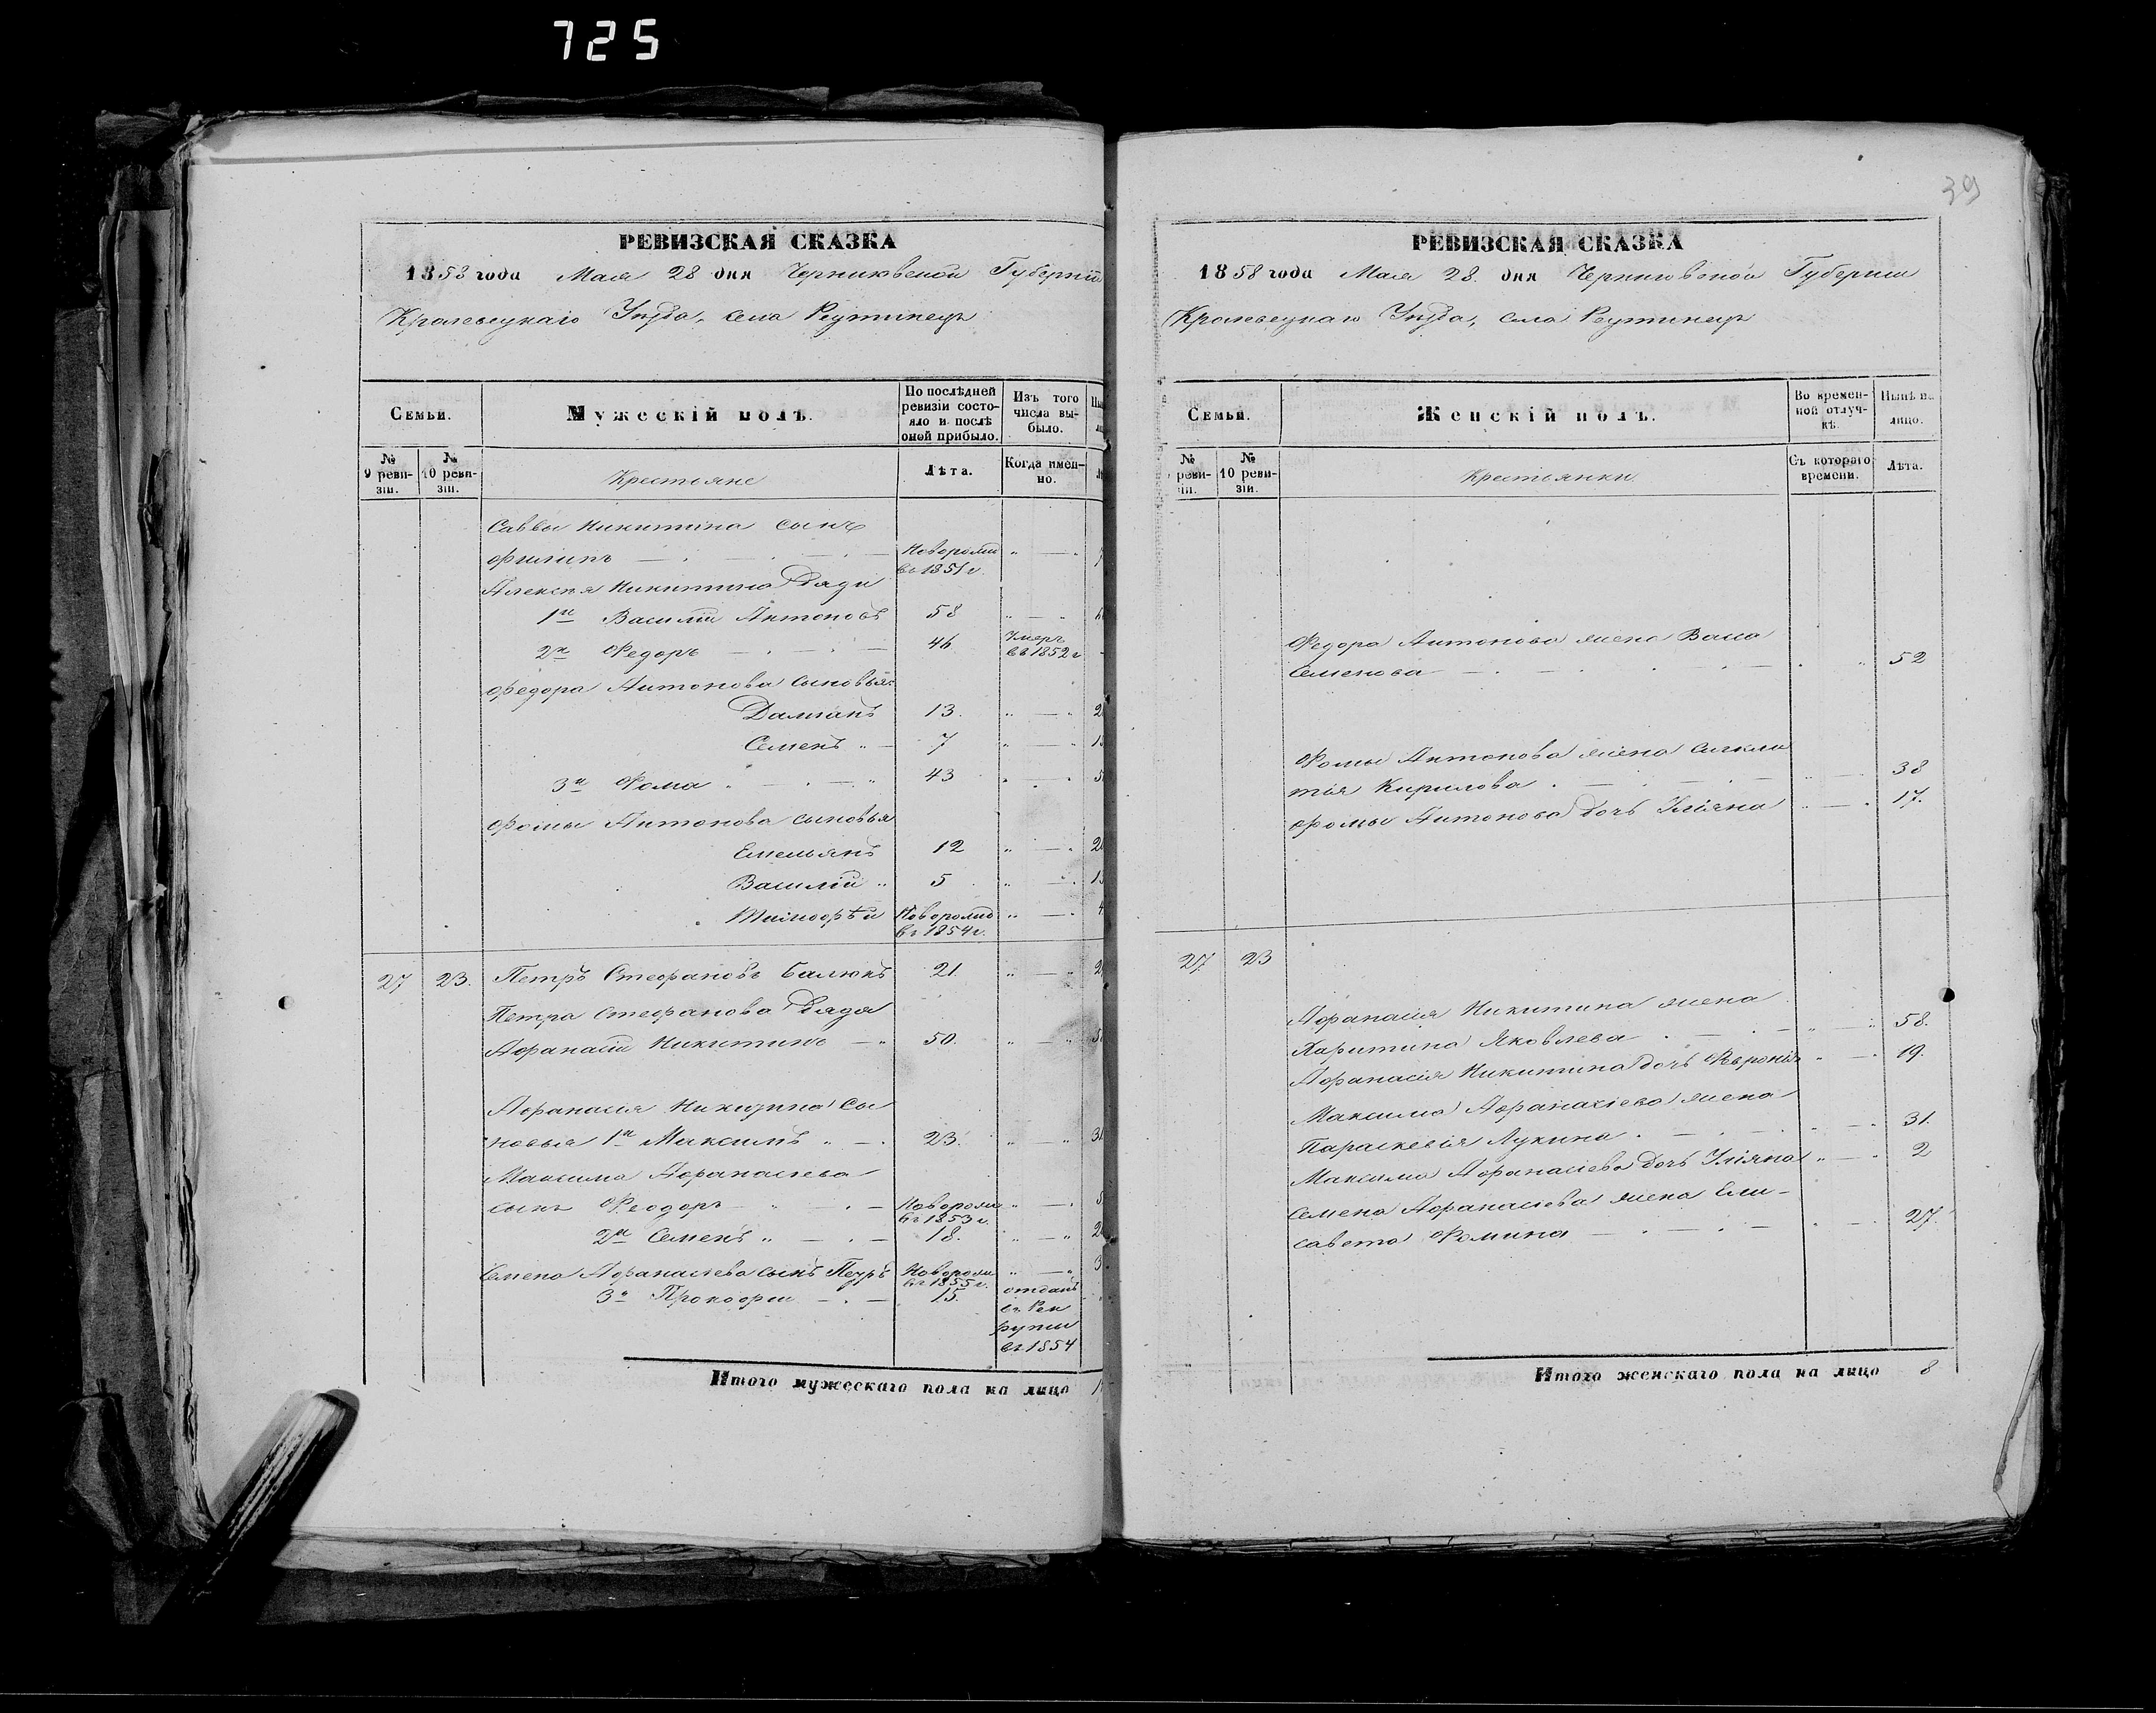 725
РЕВИЗСКАЯ СКАЗКА
1858 года Мая 28 дня Черниговской Губерніи
Кролевецкаго Уѣзда, села Реутинецъ
Семьи.
Мужескій полъ.
По послѣдней ревизіи состояло и послѣ оной прибыло.
Изъ того числа выбыло.
№ 9 ревизіи.
№ 10 ревизіи.
Крестьяне
Лѣта.
Когда именно.
Саввы Никитина сынъ
Филипъ Новорожд
въ 1851 г.
Алексѣя Никитина Дяди
1й Василій Антоновъ 58
2й Федоръ 46 Умеръ
въ 1852 г
Федора Антонова сыновья:
Даміанъ 13.
Семенъ 7
3й Фома 43
Фомы Антонова сыновья
Емельянъ 12
Василій 5
Тимофѣй Новорожд
въ 1854 г.
27 23. Петръ Стефановъ Балюкъ 21.
Петра Стефанова Дядя
Афанасій Никитинъ 50.
Афанасія Никитина сы
новья 1й Максимъ 23.
Максима Афанасіева
сынъ Феодоръ Новорожд
въ 1853 г.
2й Семенъ 18.
Семена Афанасіева сынъ Петръ Новорожд
въ 1855 г.
3й Прокофій 15. отданъ
въ Рек
руты
въ 1854
Итого мужескаго пола на лицо
39
РЕВИЗСКАЯ СКАЗКА
1858 года Мая 28. дня Черниговской Губерніи
Кролевецкаго Уѣзда, села Реутинецъ
Семьи.
Женскій полъ.
Во временной отлучкѣ.
Нынѣ на лицо.
№ ревизіи.
№ 10 ревизіи.
Крестьянки.
Съ котораго времени.
Лѣта.
Федора Антонова жена Васа
Семенова 52
Фомы Антонова жена Сикли
тія Кирилова 38
Фомы Антонова дочь Уліяна 17.
27 23
Афанасія Никитина жена
Харитина Яковлева 58.
Афанасія Никитина дочь Февронія 19.
Максима Афанасіева жена
Параскевія Лукина 31.
Максима Афанасіева дочь Уліяна 2
Семена Афанасіева жена Ели-
савета Фомина 27.
Итого женскаго пола на лицо 8